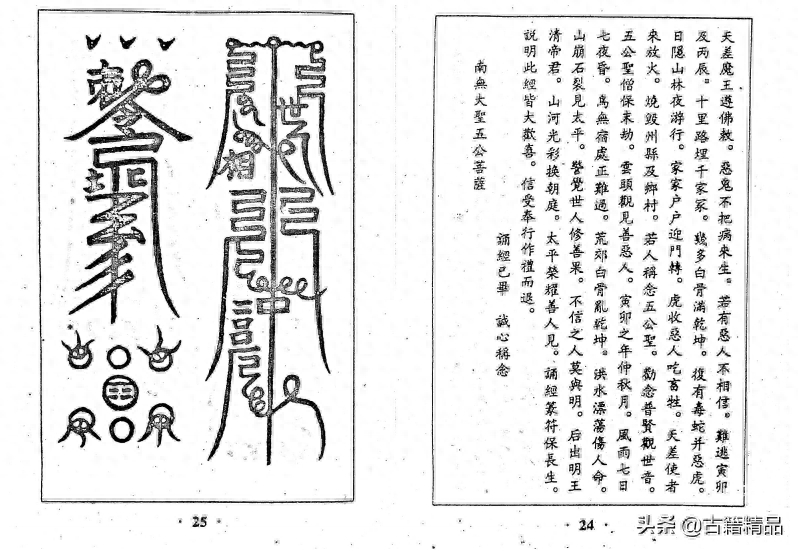 天差魔王遵佛敕。惡鬼不把病來生。若有惡人不相信。難逃寅卯
及丙辰。十里路埋千家冢。幾多白骨滿乾坤。復有毒蛇并惡虎。
日隱山林夜游行。家家戶戶迎門轉。虎收惡人吃畜牲。天差使者
來放火。燒毀州縣及鄉村。若人稱念五公聖。勸念普賢觀世音。
五公聖僧保末劫。雲頭觀見善惡人。寅卯之年仲秋月。風雨七日
七夜昏。鳥無宿處正難過。荒郊白骨亂乾坤。洪水漂蕩傷人命。
山崩石裂見太平。警覺世人修善果。不信之人莫與明。后出明王
清帝君。山河光彩換朝庭。太平榮耀善人見。誦經篆符保長生。
說明此經皆大歡喜。信受奉行作禮而退。
誦經已畢 誠心稱念
南無大聖五公菩薩
· 24 ·
· 25 ·
头条 @古籍精品